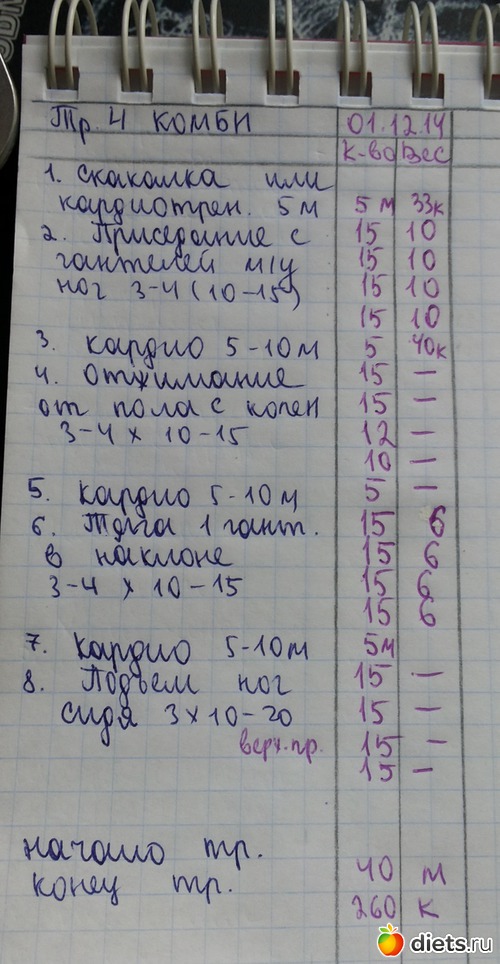 Тр. 4 КОМБИ 01.12.14
К-во Вес
1. Скакалка или
кардиотрен. 5м 5 м 33к
2. Приседание с 15 10
гантелей м/у 15 10
ног 3-4 (10-15) 15 10
15 10
3. Кардио 5-10м 5 40к
4. Отжимание 15 —
от пола с колен 15 —
3-4 х 10-15 12 —
10 —
5. Кардио 5-10м 5 —
6. Тяга 1 гант. 15 6
в наклоне 15 6
3-4 х 10-15 15 6
15 6
7. Кардио 5-10м 5м
8. Подъем ног 15 —
сидя 3х10-20 15 —
верх.пр. 15 —
15 —
начало тр. 40 м
конец тр. 260 к
diets.ru